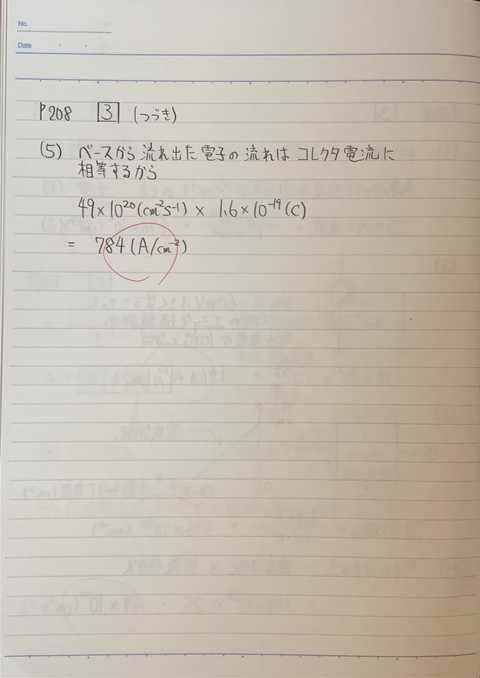 No.
Date
P208 3 (つづき)
(5) ベースから流れ出た電子の流れはコレクタ電流に
相等するから
49×10²⁰(cm⁻²s⁻¹) × 1.6×10⁻¹⁹(C)
= 784(A/cm⁻²)